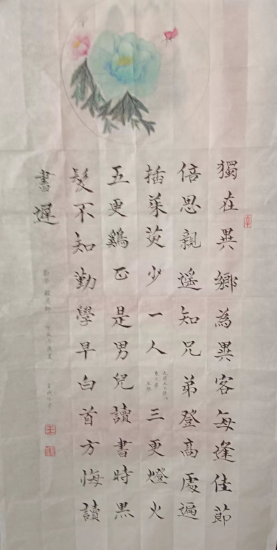 獨在異鄉為異客每逢佳節
倍思親遙知兄弟登高處遍
插茱萸少一人三更燈火
五更鷄正是男兒讀書時黑
髮不知勤學早白首方悔讀
書遲